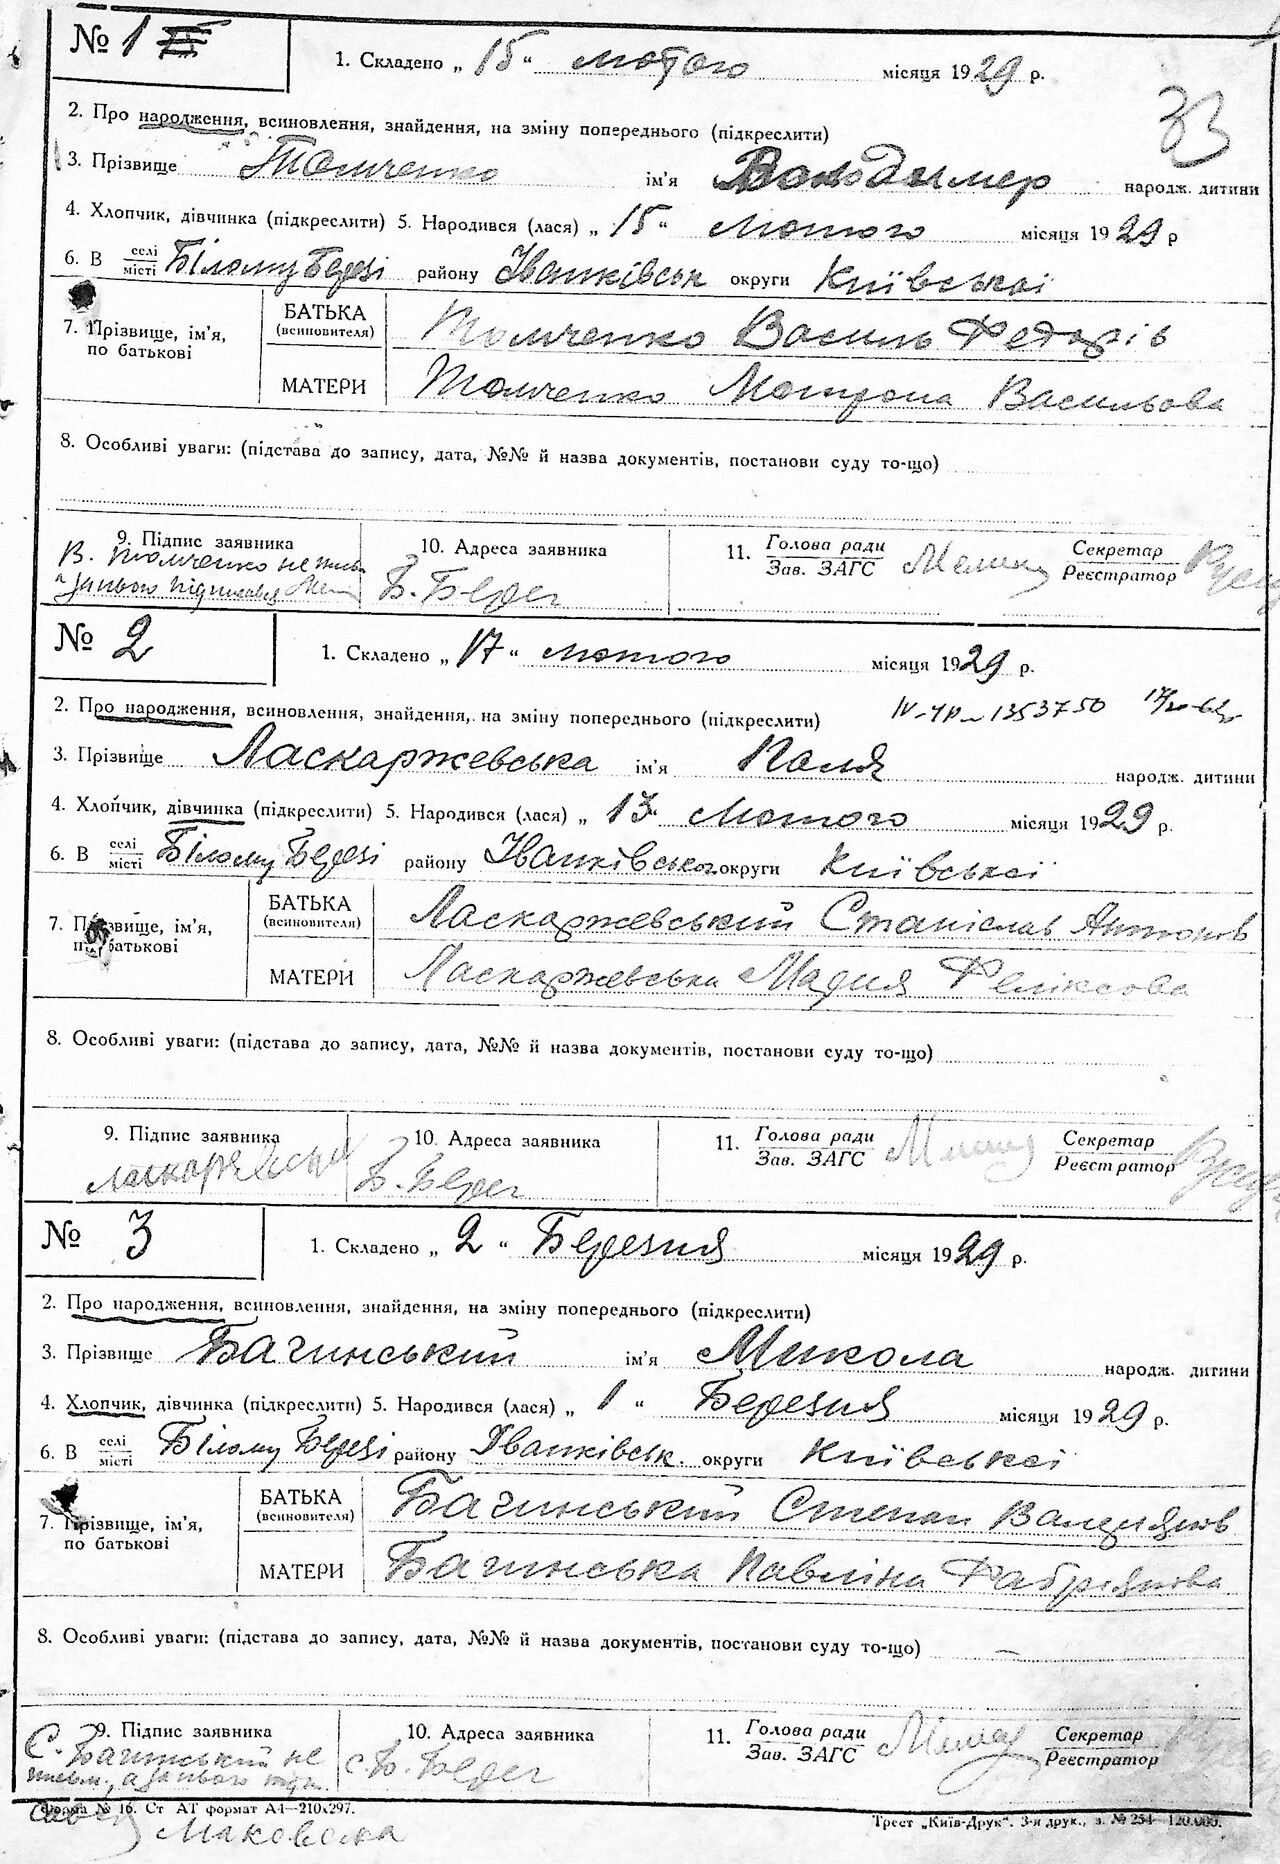 № 1
1. Складено „ 15 “ лютого місяця 1929 р.
33
2. Про народження, всиновлення, знайдення, на зміну попереднього (підкреслити)
3. Прізвище Толченко ім'я Володимер народж. дитини
4. Хлопчик, дівчинка (підкреслити) 5. Народився (лася) „ 15 “ лютого місяця 1929 р
6. В селі місті Білому Березі району Іванківськ округи Київської
7. Прізвище, ім'я, по батькові
БАТЬКА (всиновителя) Толченко Василь Федорів
МАТЕРИ Толченко Мотрона Васильова
8. Особливі уваги: (підстава до запису, дата, №№ й назва документів, постанови суду то-що)
9. Підпис заявника 10. Адреса заявника 11. Голова ради Зав. ЗАГС Секретар Реєстратор
В. Толченко не
за нього підписався
Б. Берег
№ 2
1. Складено „ 17 “ лютого місяця 1929 р.
2. Про народження, всиновлення, знайдення, на зміну попереднього (підкреслити) 1353750
3. Прізвище Ласкаржевська ім'я Поля народж. дитини
4. Хлопчик, дівчинка (підкреслити) 5. Народився (лася) „ 13 “ лютого місяця 1929 р.
6. В селі місті Білому Березі району Іванківськог округи Київської
7. Прізвище, ім'я, по батькові
БАТЬКА (всиновителя) Ласкаржевський Станіслав Антонов
МАТЕРИ Ласкаржевська Мария Феліксова
8. Особливі уваги: (підстава до запису, дата, №№ й назва документів, постанови суду то-що)
9. Підпис заявника 10. Адреса заявника 11. Голова ради Зав. ЗАГС Секретар Реєстратор
Б. Берег
№ 3
1. Складено „ 2 “ Березня місяця 1929 р.
2. Про народження, всиновлення, знайдення, на зміну попереднього (підкреслити)
3. Прізвище Бачинський ім'я Микола народж. дитини
4. Хлопчик, дівчинка (підкреслити) 5. Народився (лася) „ 1 “ Березня місяця 1929 р.
6. В селі місті Білому Березі району Іванківськ. округи Київської
7. Прізвище, ім'я, по батькові
БАТЬКА (всиновителя) Бачинський Степан
МАТЕРИ Бачинська Павліна Фабріянова
8. Особливі уваги: (підстава до запису, дата, №№ й назва документів, постанови суду то-що)
9. Підпис заявника 10. Адреса заявника 11. Голова ради Зав. ЗАГС Секретар Реєстратор
С. Бачинський не
письм., а за нього
с. Б. Берег
Форма № 16. Ст АТ формат А4—210х297.
Трест „Київ-Друк“. 3-я друк., з. № 254— 120.000.